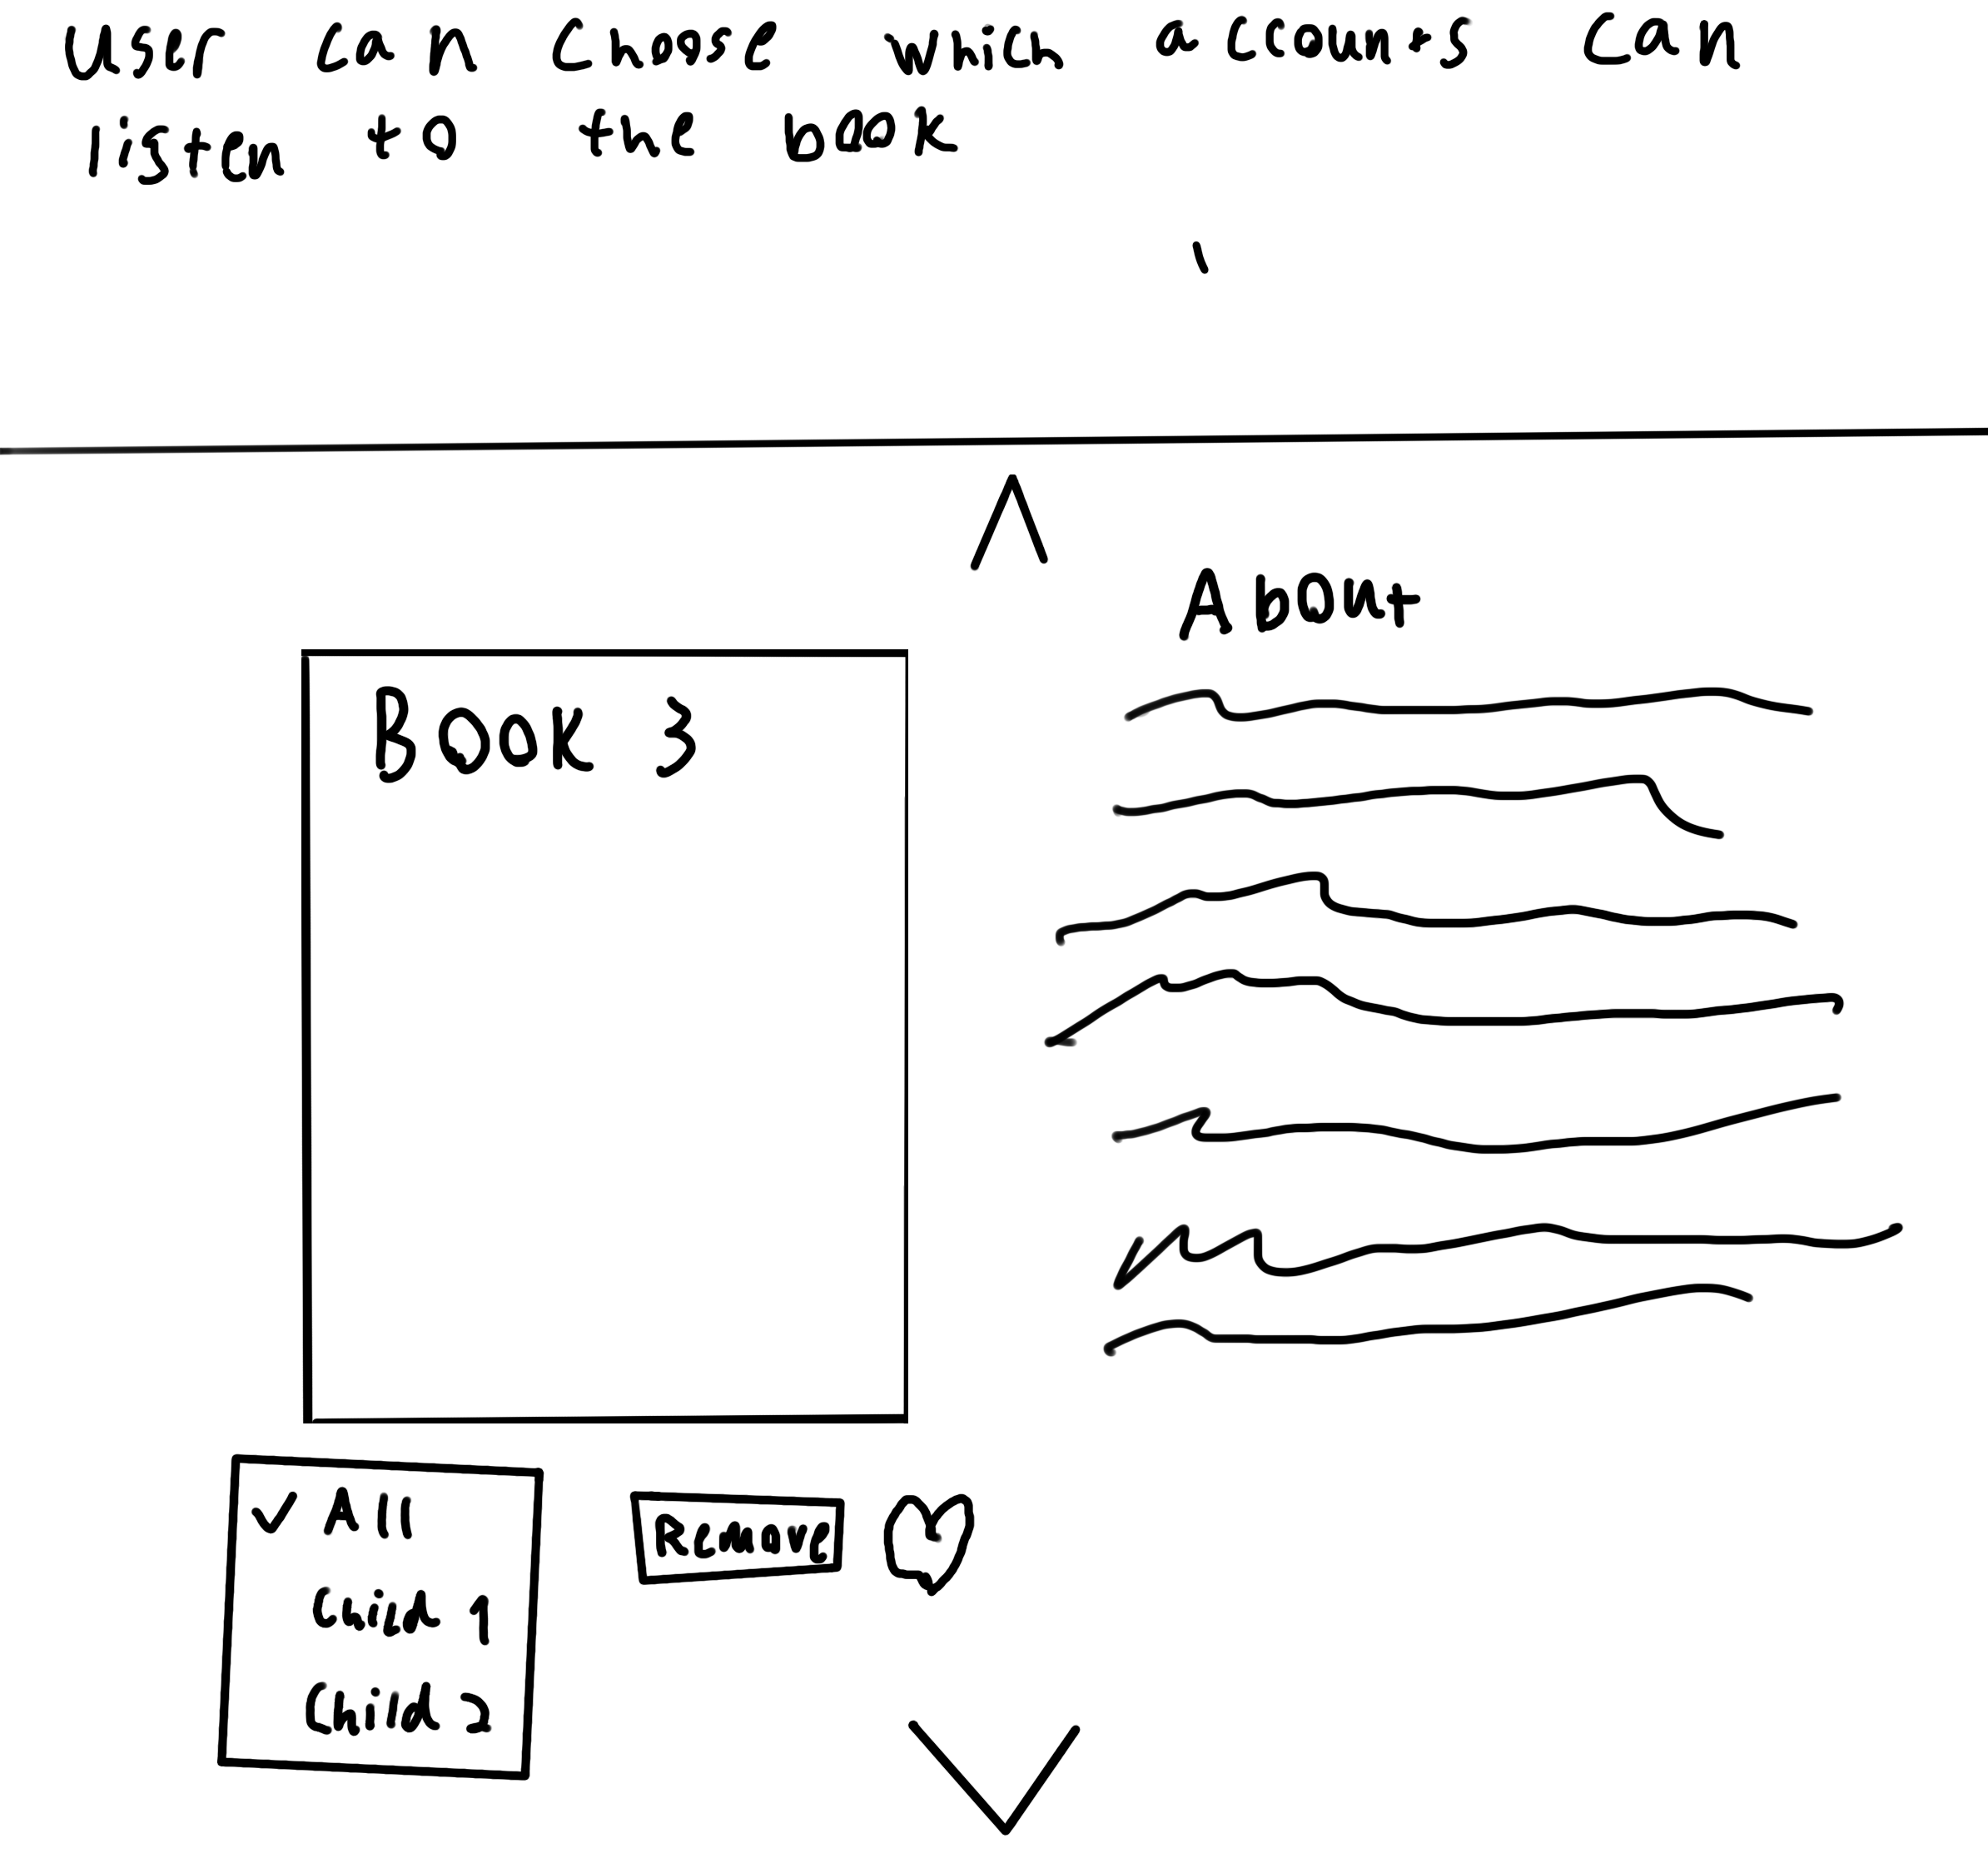 User can choose which accounts can
listen to the book
About
Book 3
✓ All
Child 1
Child 2
Remove